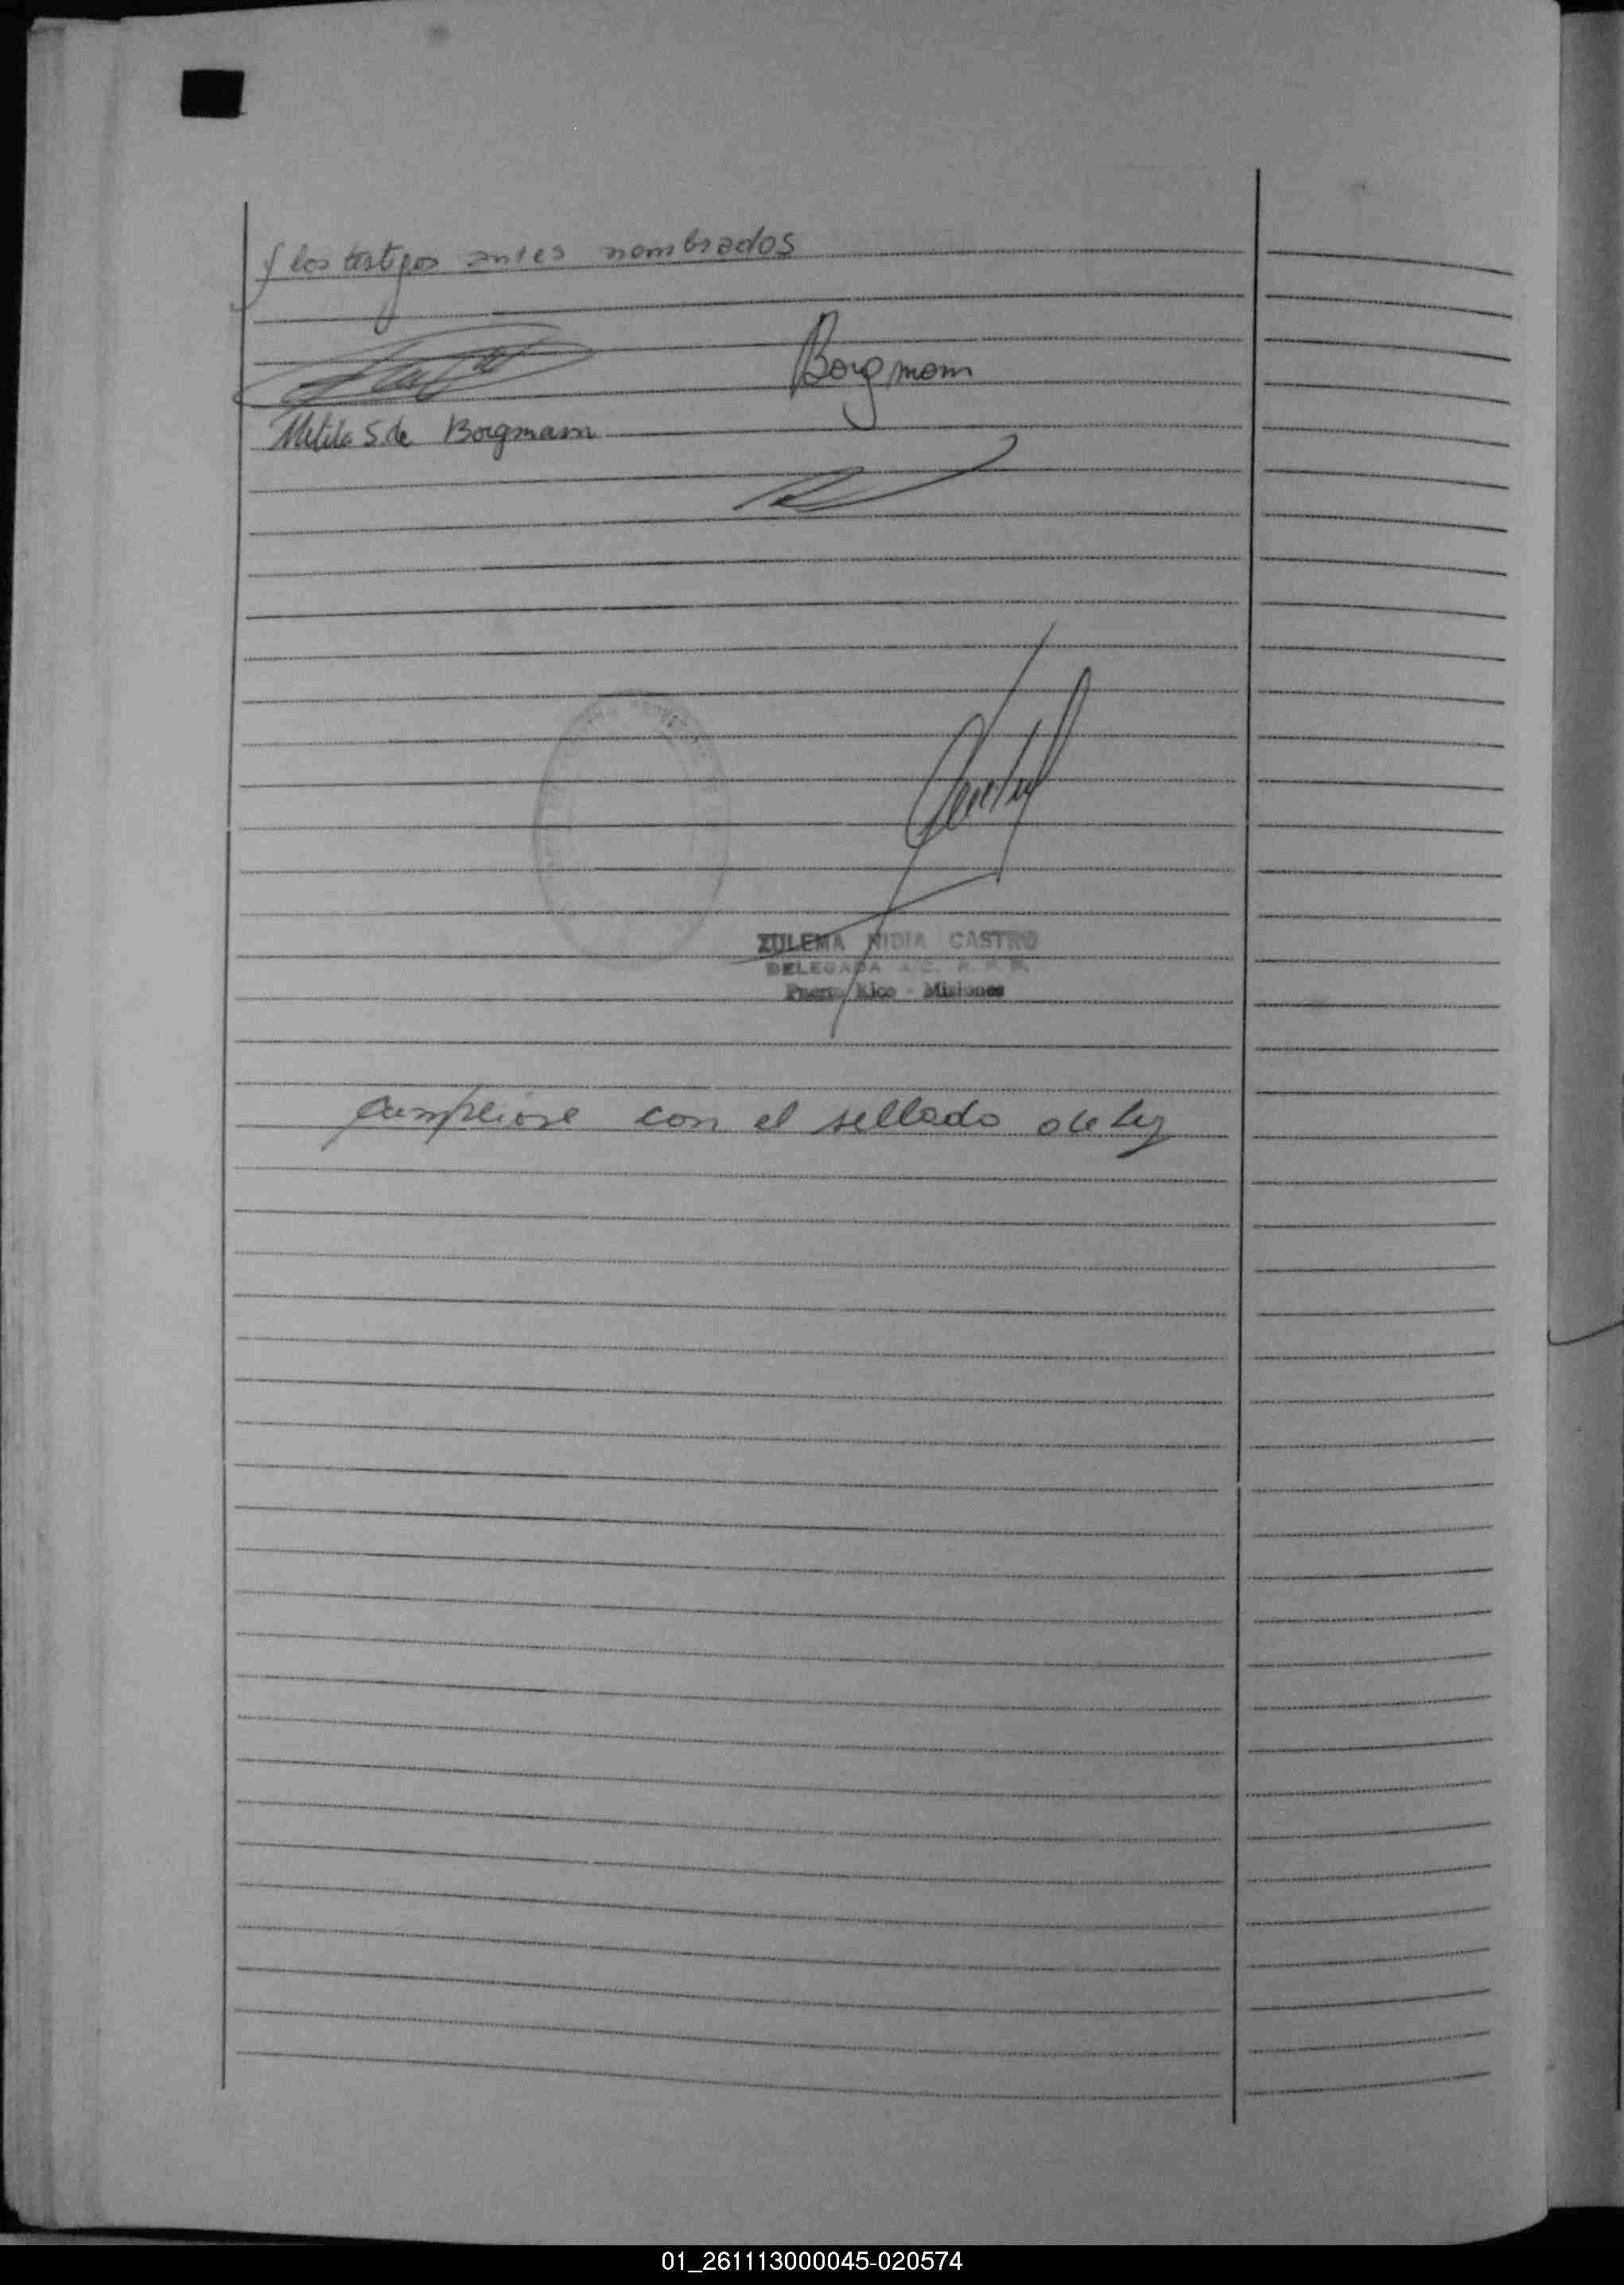 y los testigos antes nombrados
Borgmann
S. de Borgmann
ZULEMA NIDIA CASTRO
DELEGADA
Puerto Rico - Misiones
Cumpliose con el sellado de ley
01_261113000045-020574